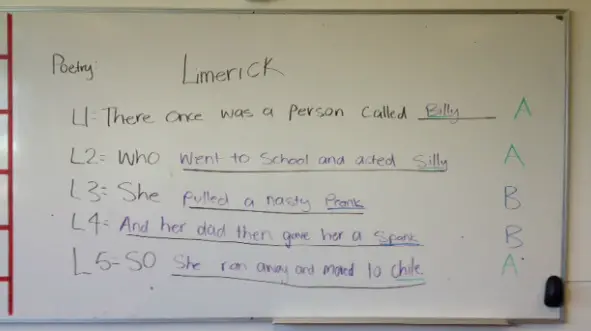 Poetry: Limerick
L1= There once was a person called Billy A
L2= Who went to school and acted Silly A
L3= She pulled a nasty Prank B
L4= And her dad then gave her a spank B
L5= SO She ran away and moved to chile A